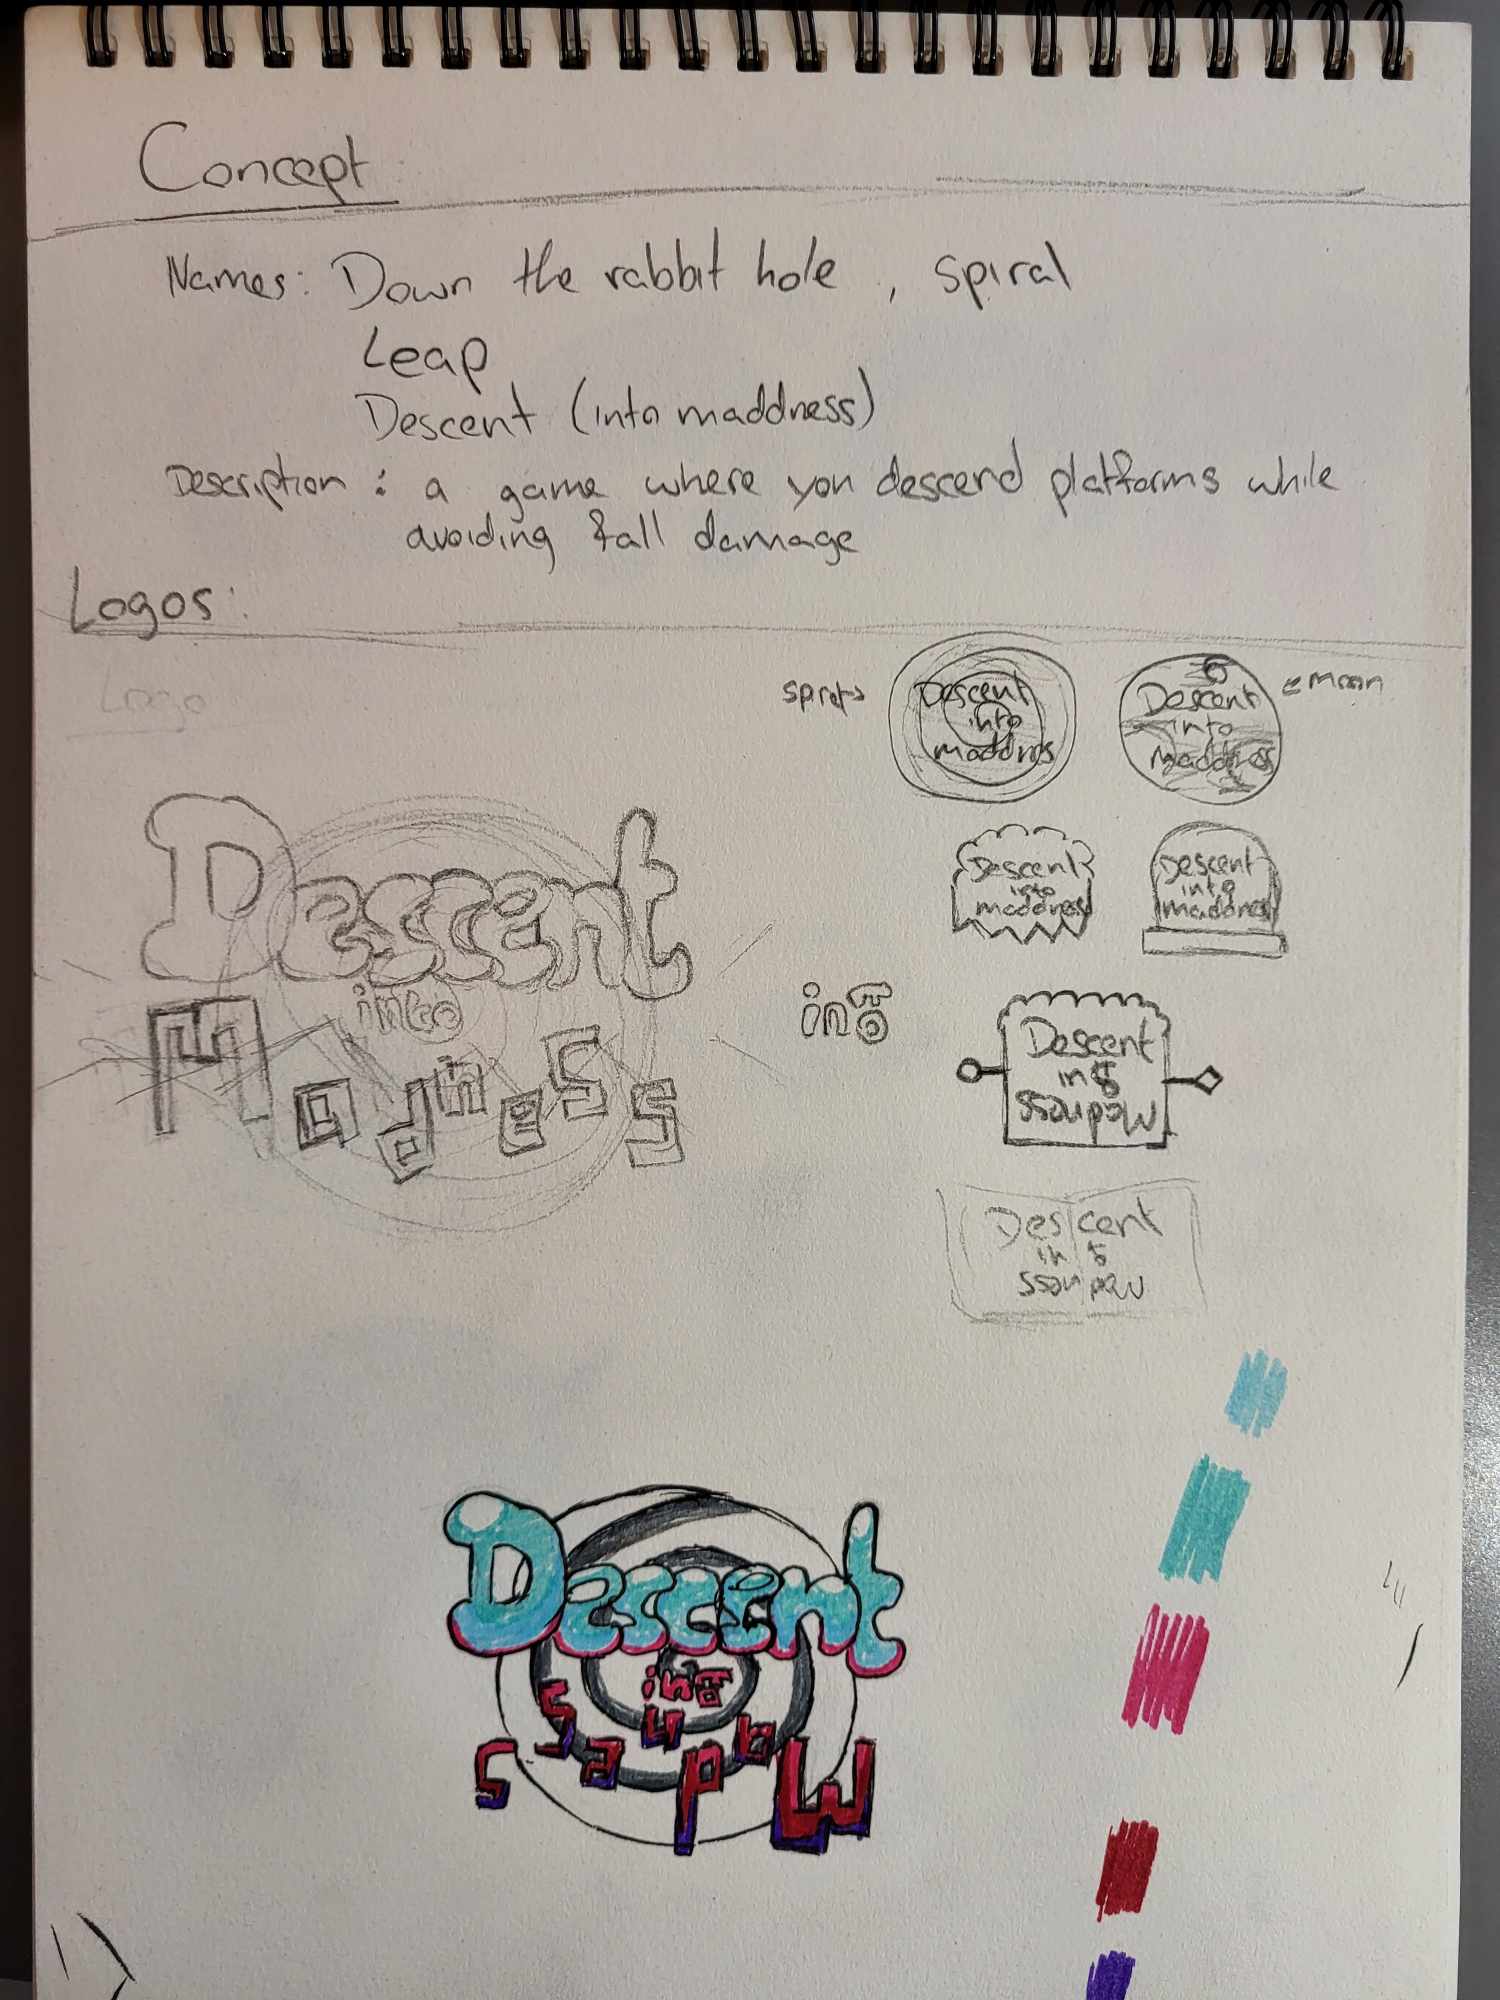 Concept
Names: Down the rabbit hole , spiral
Leap
Descent (into maddness)
Description : a game where you descend platforms while
avoiding fall damage
Logos:
Logo
Descent
into
Madness
Descent
into
Descent
into
← moon
Descent
into
maddness
Descent
into
into
Descent
into
Madness
Descent
into
Madness
Descent
into
Madness